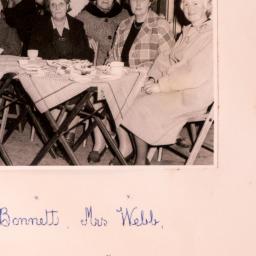 Bonnett. Mrs Webb.